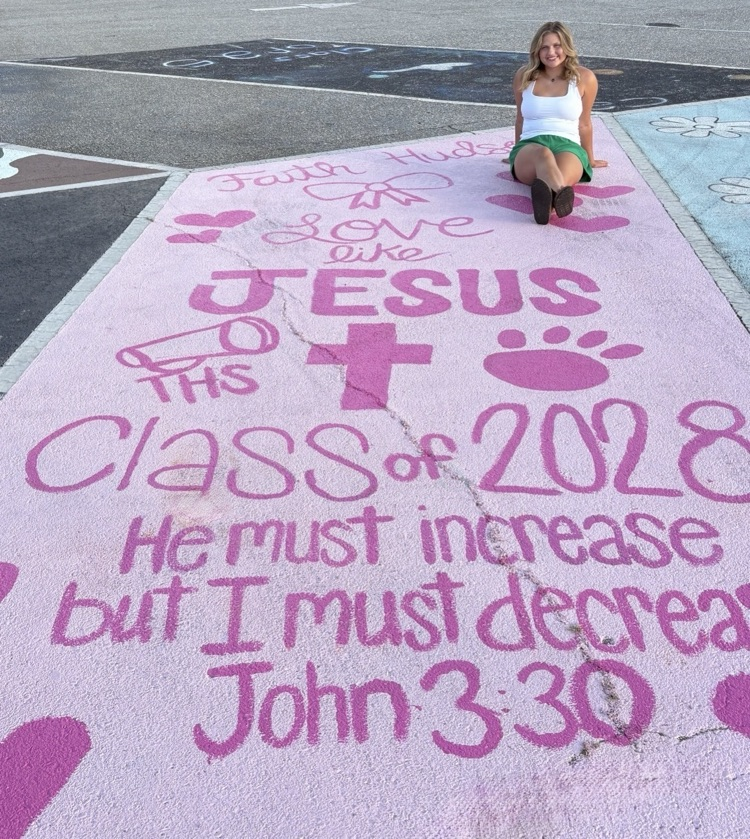 Faith
Love
like
JESUS
THS
Class of 2028
He must increase
but I must decrea
John 3:30